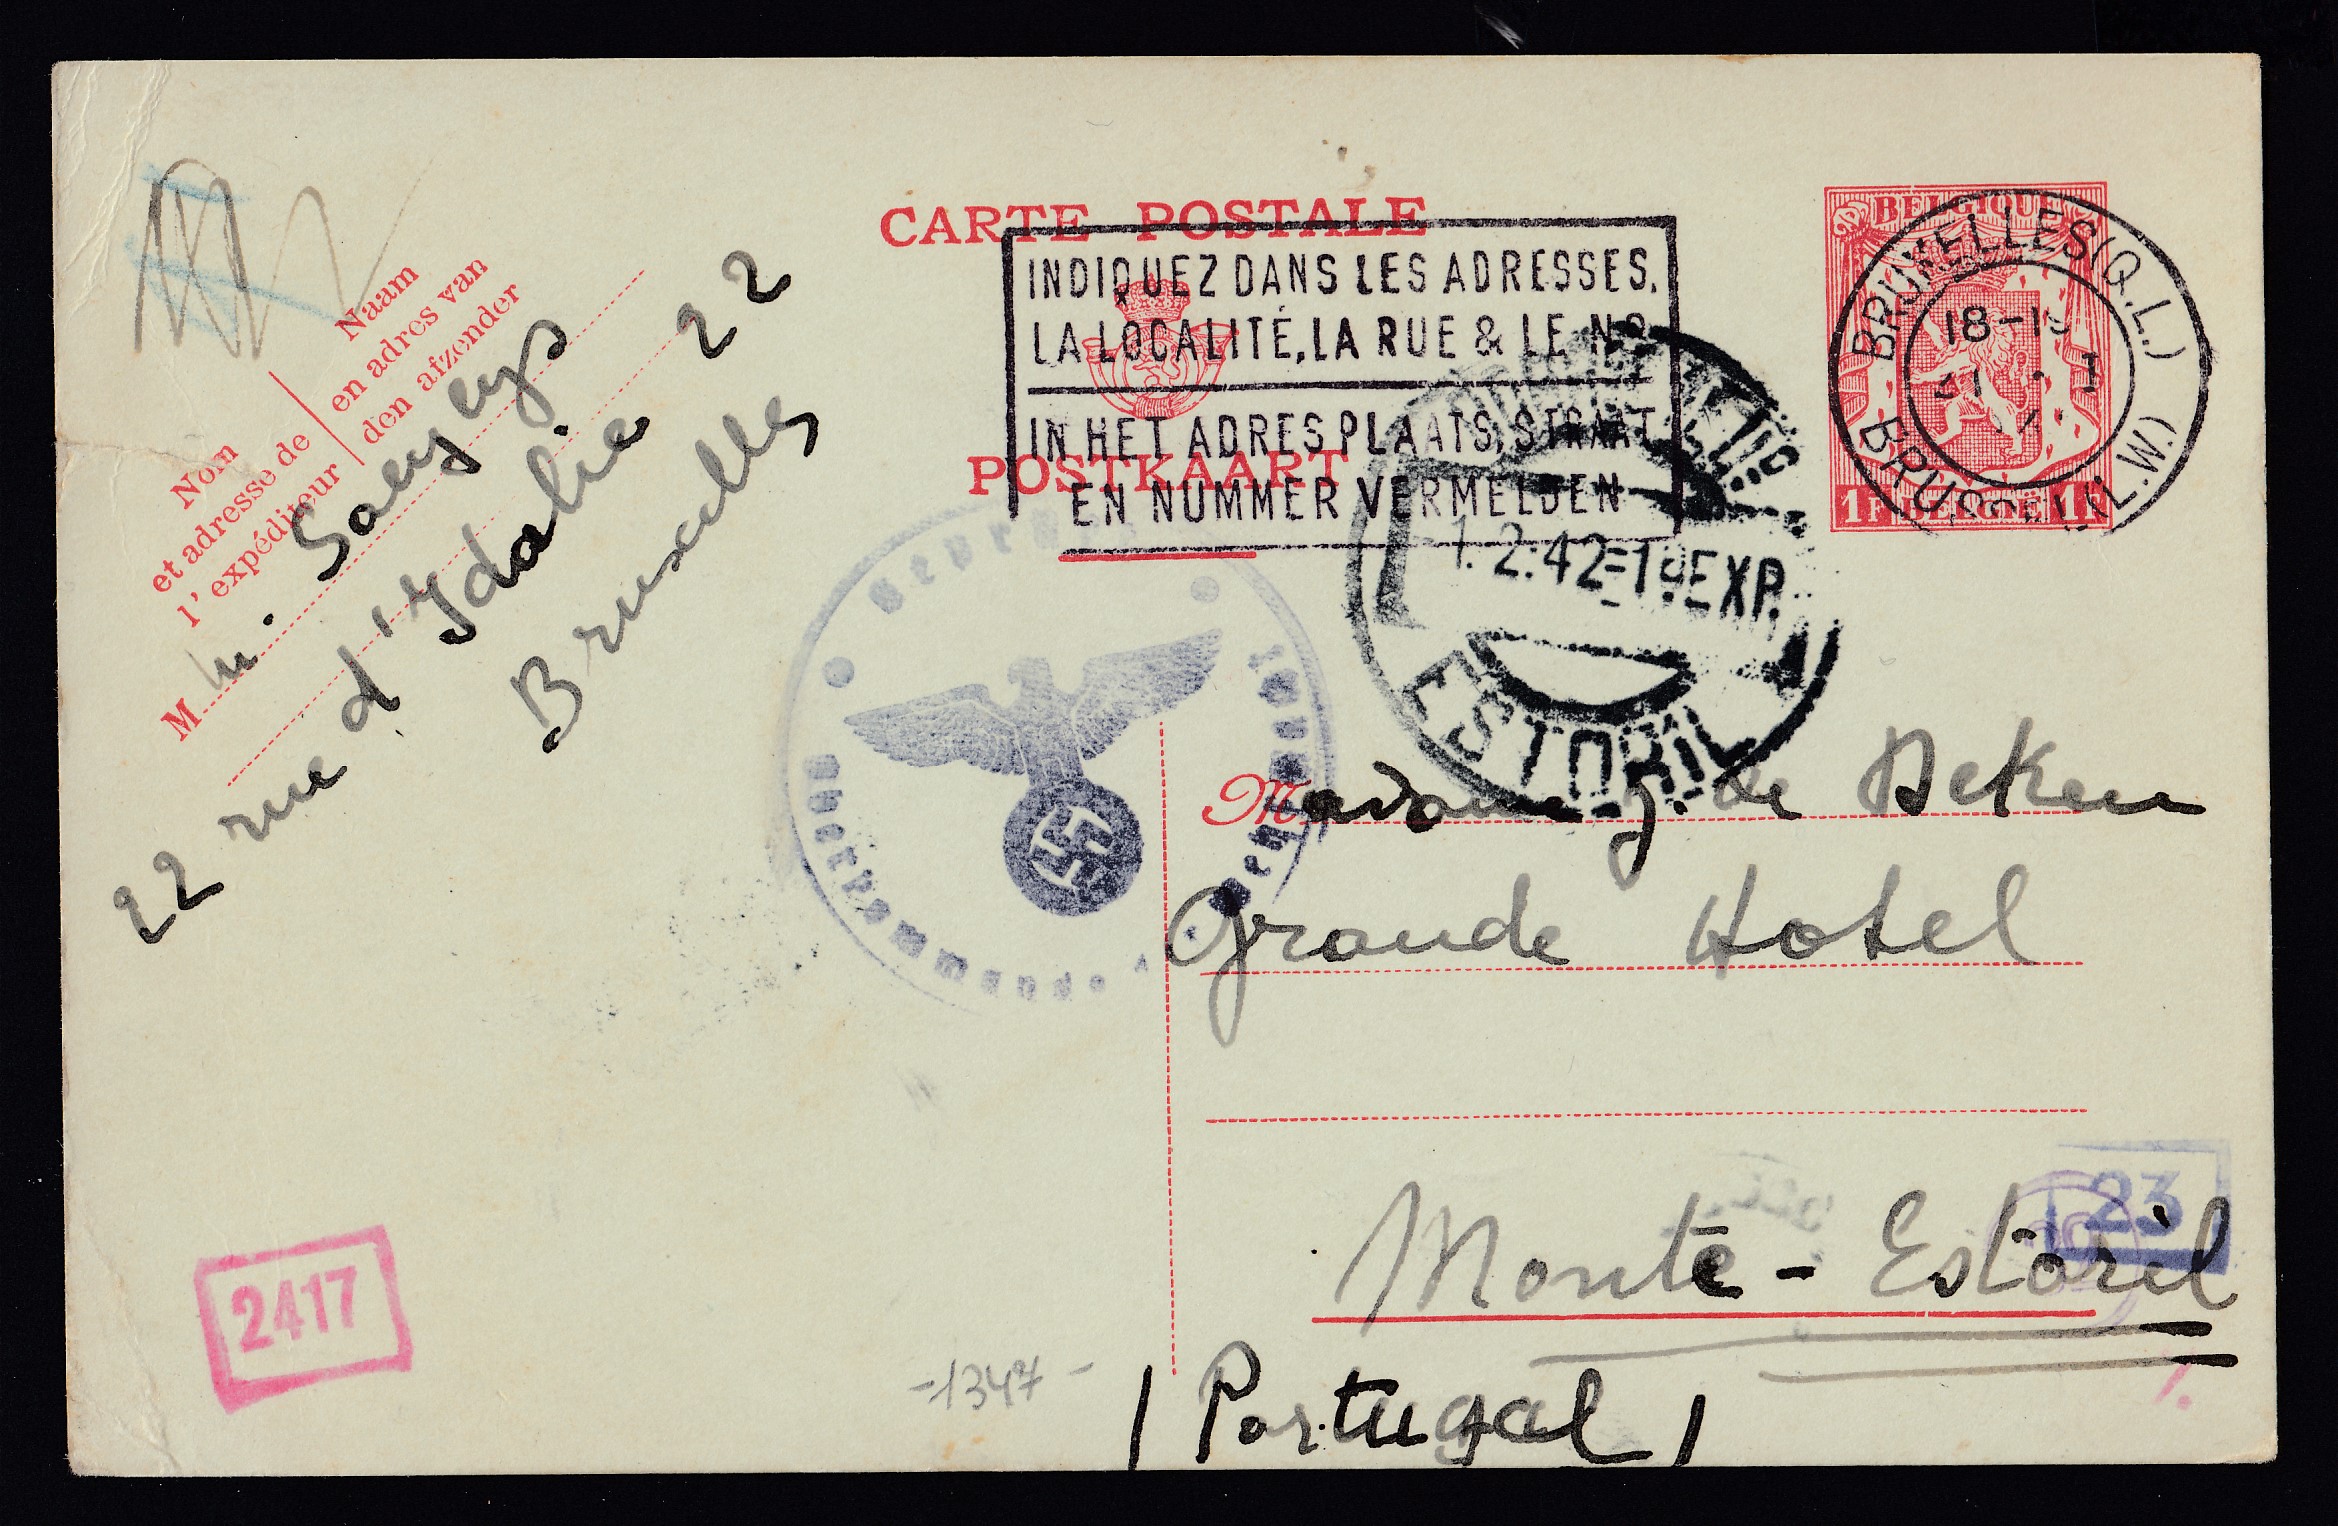 CARTE POSTALE
POSTKAART
INDIQUEZ DANS LES ADRESSES,
LA LOCALITÉ, LA RUE & LE No
IN HET ADRES PLAATS, STRAAT
EN NUMMER VERMELDEN
BELGIQUE
1F BELGIË 1F
BRUXELLES (Q.L.)
18-1
BRUSSEL (L.W.)
1.2.42=1ª EXP.
ESTORIL
Nom
et adresse de
l'expéditeur
Naam
en adres van
den afzender
M
22 rue d'Idalie 22
Bruxelles
Geprüft
Oberkommando Wehrmacht
Madame J. de Deken
Grande Hotel
Monte-Estoril
/ Portugal /
23
2417
-1347-